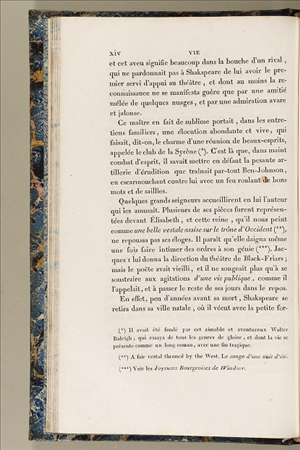 xiv VIE
et cet aveu signifie beaucoup dans la bouche d'un rival,
qui ne pardonnait pas à Shakspeare de lui avoir le pre-
mier servi d'appui au théâtre, et dont au moins la re-
connaissance ne se manifesta guère que par une amitié
mêlée de quelques nuages, et par une admiration avare
et jalouse.
Ce maître en fait de sublime portait, dans les entre-
tiens familiers, une élocution abondante et vive, qui
faisait, dit-on, le charme d'une réunion de beaux-esprits,
appelée le club de la Syrène (*). C'est là que, dans maint
combat d'esprit, il savait mettre en défaut la pesante ar-
tillerie d'érudition que traînait par-tout Ben-Johnson,
en escarmouchant contre lui avec un feu roulant de bons
mots et de saillies.
Quelques grands seigneurs accueillirent en lui l'auteur
qui les amusait. Plusieurs de ses pièces furent représen-
tées devant Élisabeth, et cette reine, qu'il nous peint
comme une belle vestale assise sur le trône d'Occident (**),
ne repoussa pas ses éloges. Il paraît qu'elle daigna même
une fois faire intimer des ordres à son génie (***). Jac-
ques I lui donna la direction du théâtre de Black-Friars;
mais le poète avait vieilli, et il ne songeait plus qu'à se
soustraire aux agitations d'une vie publique, comme il
l'appelait, et à passer le reste de ses jours dans le repos.
En effet, peu d'années avant sa mort, Shakspeare se
retira dans sa ville natale, où il vécut avec la petite for-
(*) Il avait été fondé par cet aimable et aventureux Walter
Raleigh, qui essaya de tous les genres de gloire, et dont la vie se
présente comme un long roman, avec une fin tragique.
(**) A fair vestal throned by the West. Le songe d'une nuit d'été.
(***) Voir les Joyeuses Bourgeoises de Windsor.